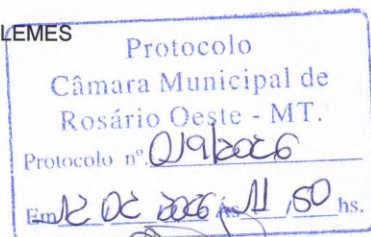 LEMES
Protocolo
Câmara Municipal de
Rosário Oeste - MT.
Protocolo nº. 019/2026
Em 12 02 2026 às 11 , 50 hs.